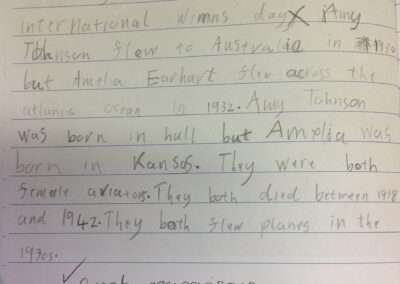 international wimns day X Amy
Johnson flew to Australia in 1930
but Amelia Earhart flew across the
atlantic ocean in 1932. Amy Johnson
was born in hull but Amelia was
born in Kansas. They were both
female aviators. They both died between 1938
and 1942. They both flew planes in the
1930s.